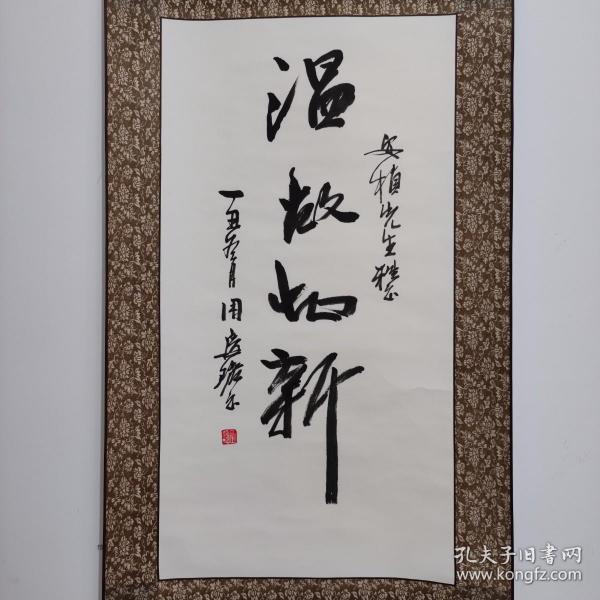 安植先生雅正
温故知新
丑冬月周
孔夫子旧书网
www.kongfz.com